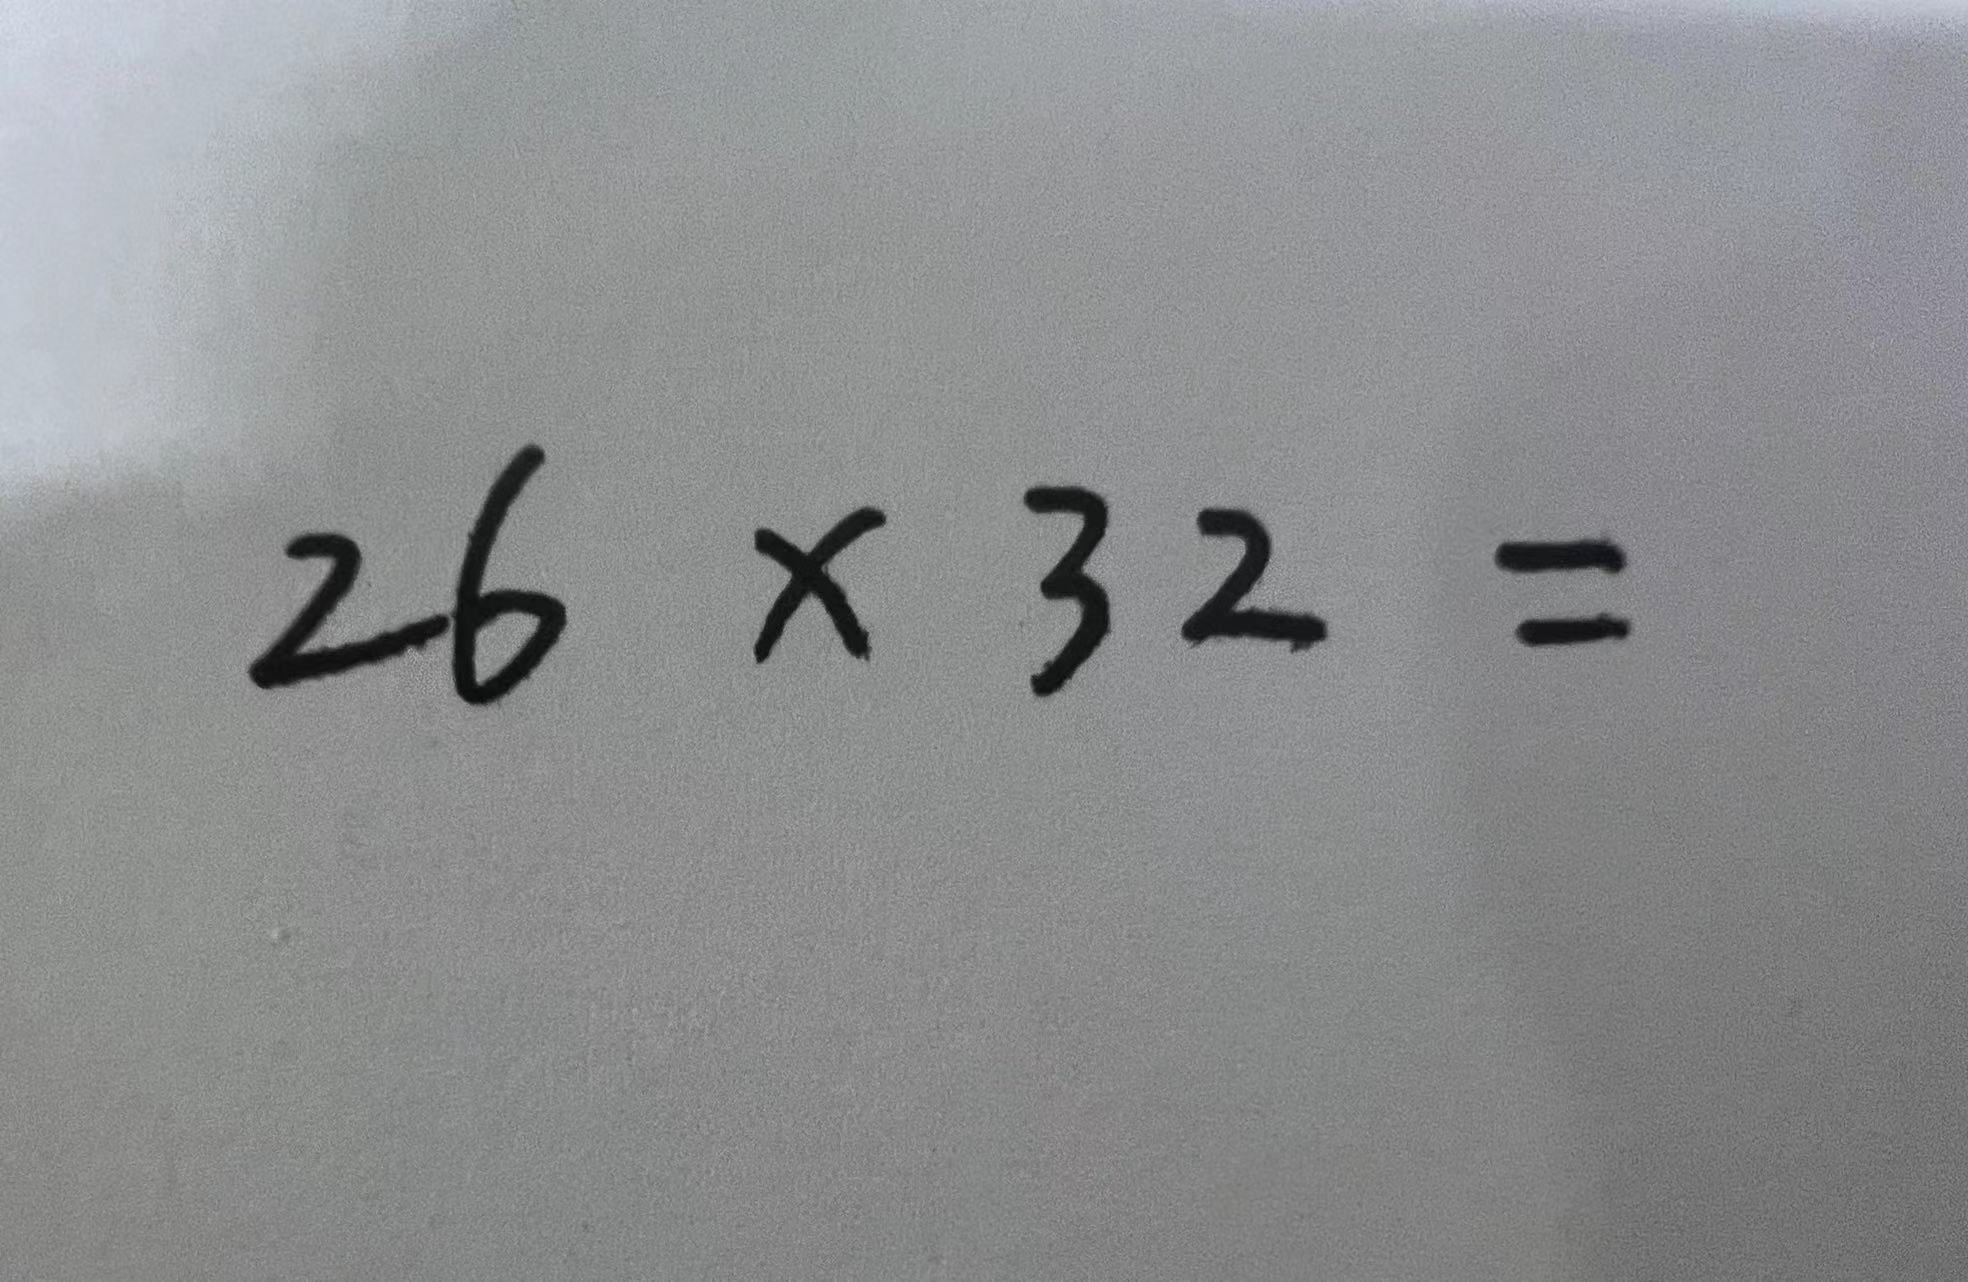 26 × 32 =